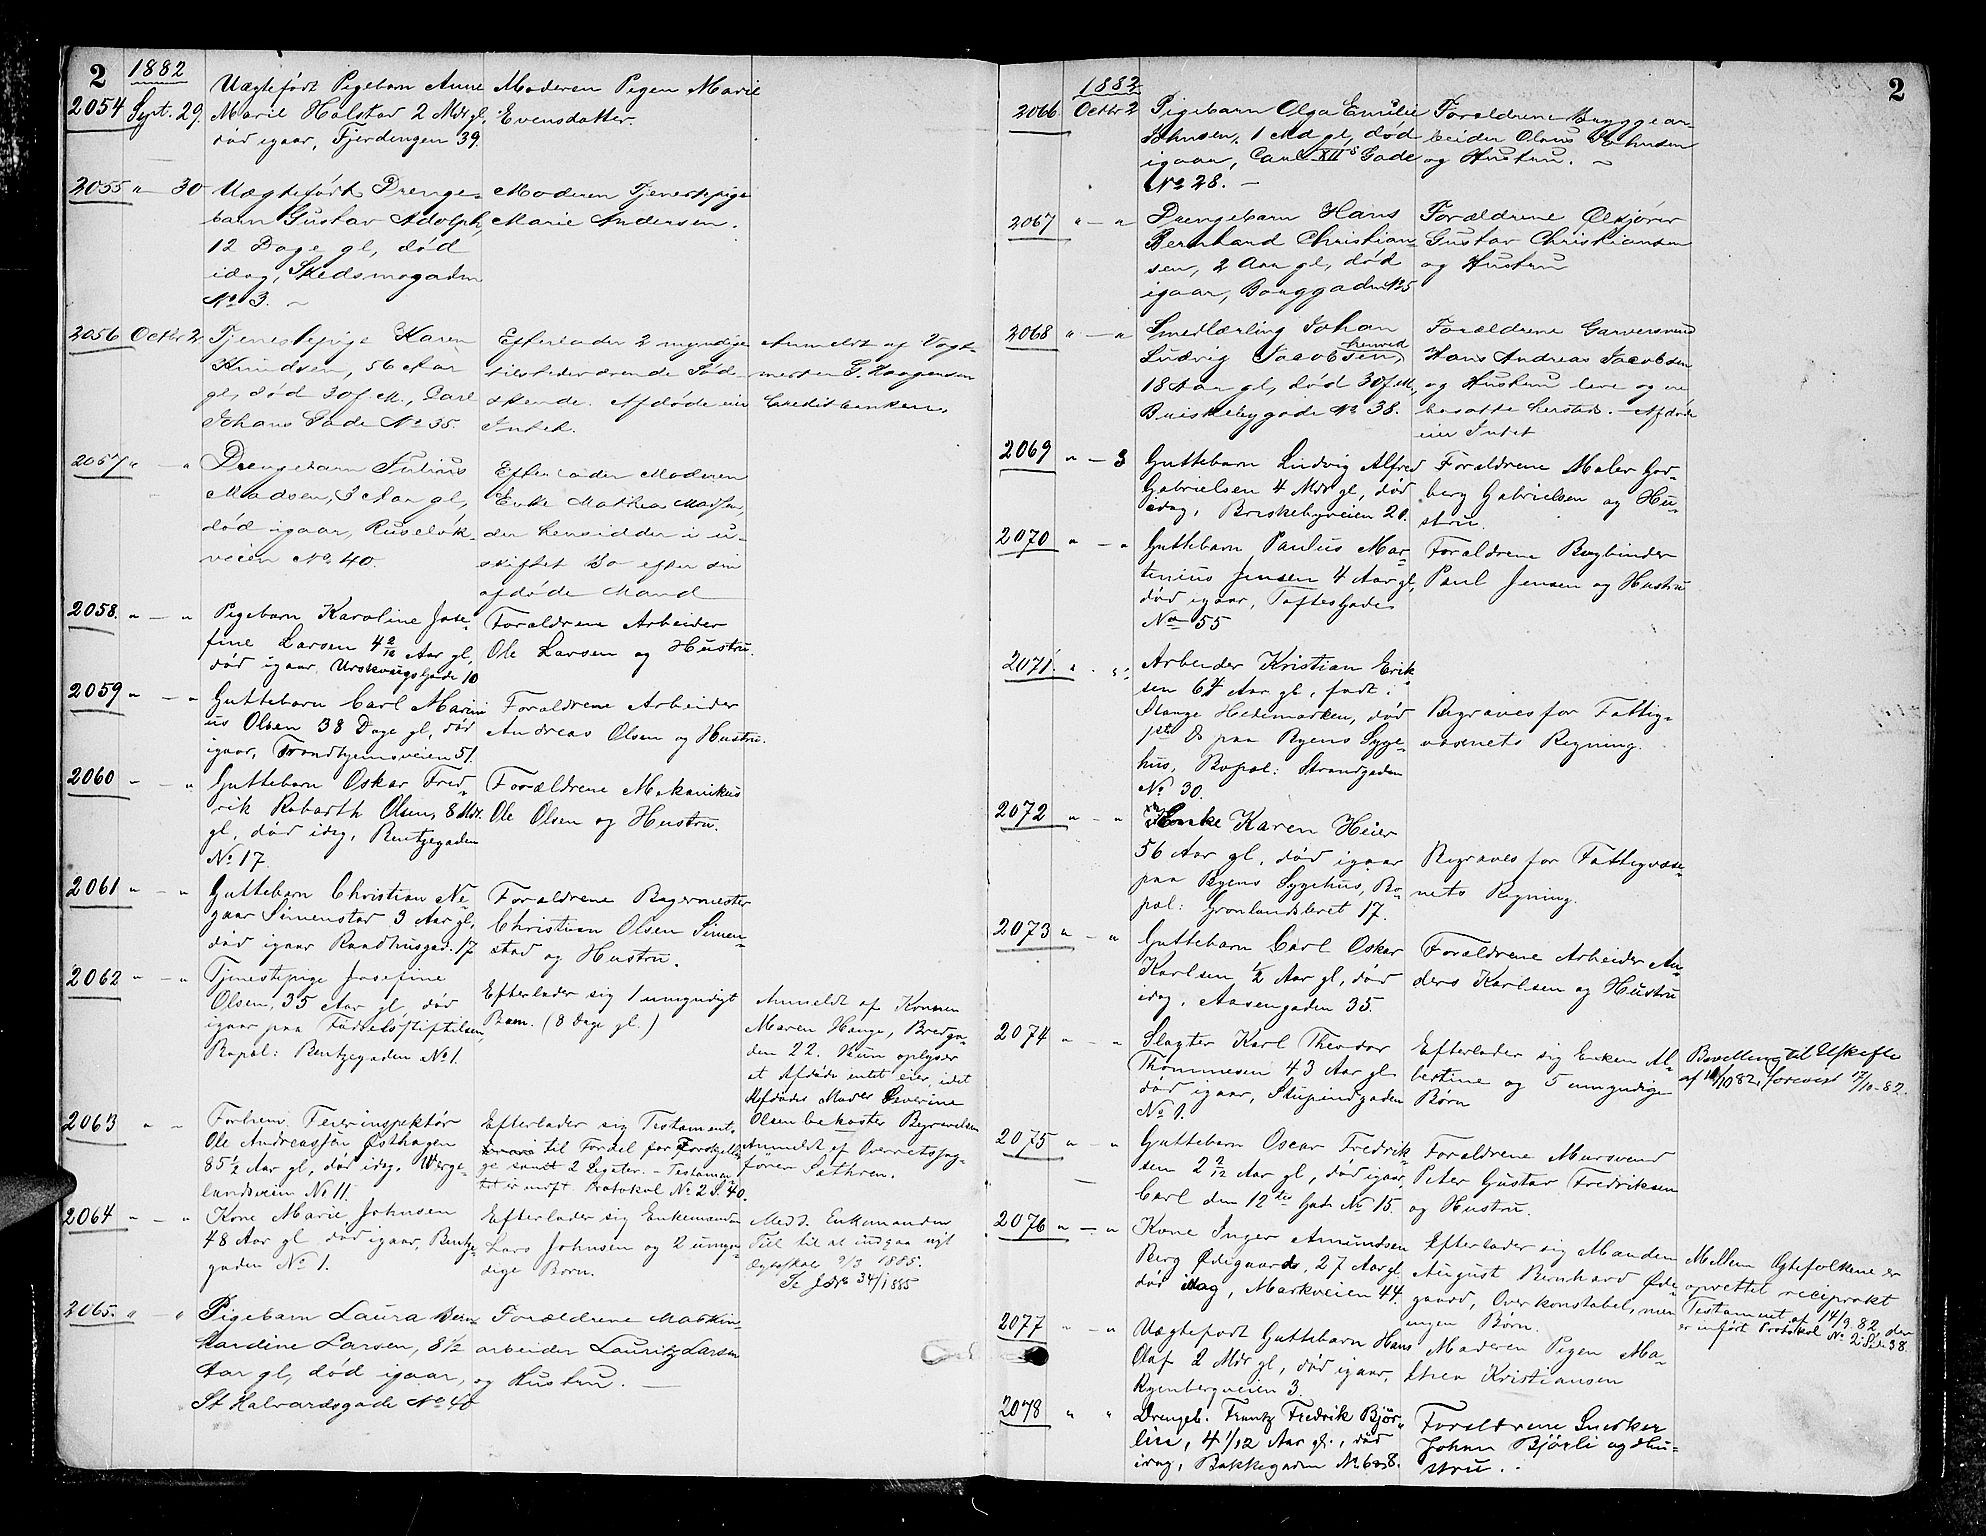 2
1882
2054 Sept. 29. Uægtefödt Pigebarn Anne
Marie Halstad 2 Mdr gl,
död igaar, Fjerdingen 39.
Moderen Pigen Marie
Evensdatter.
2055 " 30 Uægtefödt Drenge-
barn Gustav Adolph,
12 Dage gl, död
idag, Skedsmogaden
No 3. -
Moderen Tjenestepige
Marie Andersen.
2056 Octbr 2 Tjenestepige Karen
Knudsen, 56 Aar
gl, död 30 f. M., Carl
Johans Gade No 35.
Efterlader 2 myndige
tilstedeværende Sød-
skende. Afdöde eier
Intet.
Anmeldt af Vagt-
mester T. Haagensen
Creditbanken.
2057 " - " Drengebarn Julius
Madsen, 3 Aar gl,
död igaar, Ruselök-
veien No 40.
Efterlader Moderen
Enke Mathea Madsen,
der hensidder i u-
skiftet Bo efter sin
afdöde Mand
2058. " - " Pigebarn Karoline Jose-
fine Larsen 4 2/12 Aar gl,
död igaar, Urskougs Gade 10
Forældrene Arbeider
Ole Larsen og Hustru.
2059 " - " Guttebarn Carl Marini
us Olsen 38 Dage gl, död
igaar, Trondhjemsveien 51.
Forældrene Arbeider
Andreas Olsen og Hustru.
2060 - - " Guttebarn Oskar Fred-
rik Robarth Olsen, 8 Mdr.
gl, död idag, Rentzegaden
No 17.
Forældrene Mekanikus
Ole Olsen og Hustru.
2061 " - " Guttebarn Christian Ne-
gaar Simenstad 3 Aar gl,
död igaar Raadhusgad. 17
Forældrene Bagermester
Christian Olsen Simen-
stad og Hustru.
2062 " - " Tjenestepige Josefine
Olsen, 35 Aar gl, död
igaar paa Födselsstiftelsen,
Bopæl: Rentzegaden No 1.
Efterlader sig 1 umyndigt
Barn. (8 Dage gl.)
Anmeldt af Konen
Maren Hauge, Bredga-
den 22. Hun oplyser
at Afdöde intet eier, idet
Afdödes Moder Severine
Olsen bekoster Begravelsen
2063 " " Forhenv. Feierinspektör
Ole Andreassön Østhagen
85 1/2 Aar gl, död idag, Werge-
landsveien No 11.
Efterlader sig Testament
til Fordel for
samt 2 Legater. - Testamen-
tet er indf. Protokol No 2 S. 40.
Anmeldt af Overretssag-
fører Sæthren.
2064 " - " Kone Marie Johnsen
48 Aar gl död igaar, Rentze-
gaden No 1.
Efterlader sig Enkemanden
Lars Johnsen og 2 umyn-
dige Børn.
Medd. Enkemanden
Till til at indgaa nyt
Ægteskab 9/3 1885.
Se Jdr 34/1885
2065. " " Pigebarn Laura Bern-
hardine Larsen, 8 1/2
Aar gl, död igaar,
St Halvardsgade No 40
Forældrene Maskin-
arbeider Lauritz Larsen
og Hustru. -
2
1882
2066 Octbr 2 Pigebarn Olga Emilie
Johnsen, 1 Md gl, död
igaar, Carl XII's Gade
No 28. -
Forældrene Bryggear-
beider Olaus Johnsen
og Hustru. -
2067 " - " Drengebarn Hans
Bernhard Christian-
sen, 2 Aar gl, död
igaar, Borggaden 25
Forældrene
Gustav Christiansen
og Hustru
2068 " - " Smedlærling Johan
Ludvig Jacobsen,
18 Aar gl, död 30 f. M.,
Briskebygade No 38.
Forældrene Garversvend
Hans Andreas Jacobsen
og Hustru leve og ere
bosatte hersteds. - Afdöde
eier Intet
2069 " - 3 Guttebarn Ludvig Alfred
Gabrielsen 4 Mdr gl, död
idag, Briskebyveien 21.
Forældrene Maler God-
berg Gabrielsen og Hu-
stru.
2070 " - " Guttebarn Paulus Mar-
tinius Jensen 4 Aar gl,
död igaar, Toftes Gade
No 55
Forældrene Bogbinder
Paul Jensen og Hustru
2071. " " Arbeider Kristian Erik-
sen 64 Aar gl, födt i
Stange Hedemarken, död
1ste ds paa Byens Syge-
hus, Bopæl: Strandgaden
No 30.
Begraves for Fattig-
væsenets Regning.
2072 " - " Enke Karen Heier
56 Aar gl, död igaar
paa Byens Sygehus, Bo-
pæl: Grönlandsleret 17.
Begraves for Fattigvæse-
nets Regning.
2073 " - " Guttebarn Carl Oskar
Karlsen 1/2 Aar gl, död
idag, Aasengaden 35.
Forældrene Arbeider An-
ders Karlsen og Hustru
2074 " - " Slagter Karl Theodor
Thommesen 43 Aar gl
död igaar, Stupindgaden
No 1.
Efterlader sig Enken Al-
bertine og 5 umyndige
Børn
Bevilling til Uskifte
af 10/10 82, forevist 17/10-82.
2075 " - " Guttebarn Oscar Fredrik-
sen 2 2/12 Aar gl, död igaar,
Carl den 12tes Gade No 15.
Forældrene Mursvend
Peter Gustav Fredriksen
og Hustru.
2076 " - " Kone Inger Amundsen
Berg Ødegaard, 27 Aar gl.
död idag, Markveien 44.
Efterlader sig Manden
August Bernhard Øde-
gaard, Overkonstabel, men
ingen Børn.
Mellem Ægtefolkene er
oprettet reciprokt
Testament af 14/9 82, der
er indført Protokol No 2 Side 38.
2077 " - " Uægtefödt Guttebarn Hans
Olaf 2 Mdr gl, död igaar,
Ryenbergveien 3.
Moderen Pigen Ma-
thea Kristiansen
2078 " " Drengeb. Frantz Fredrik Björ-
lin, 4 1/12 Aar gl., död
idag, Bakkegaden No 6&8.
Forældrene Snedker
Johan Björli og Hu-
stru.